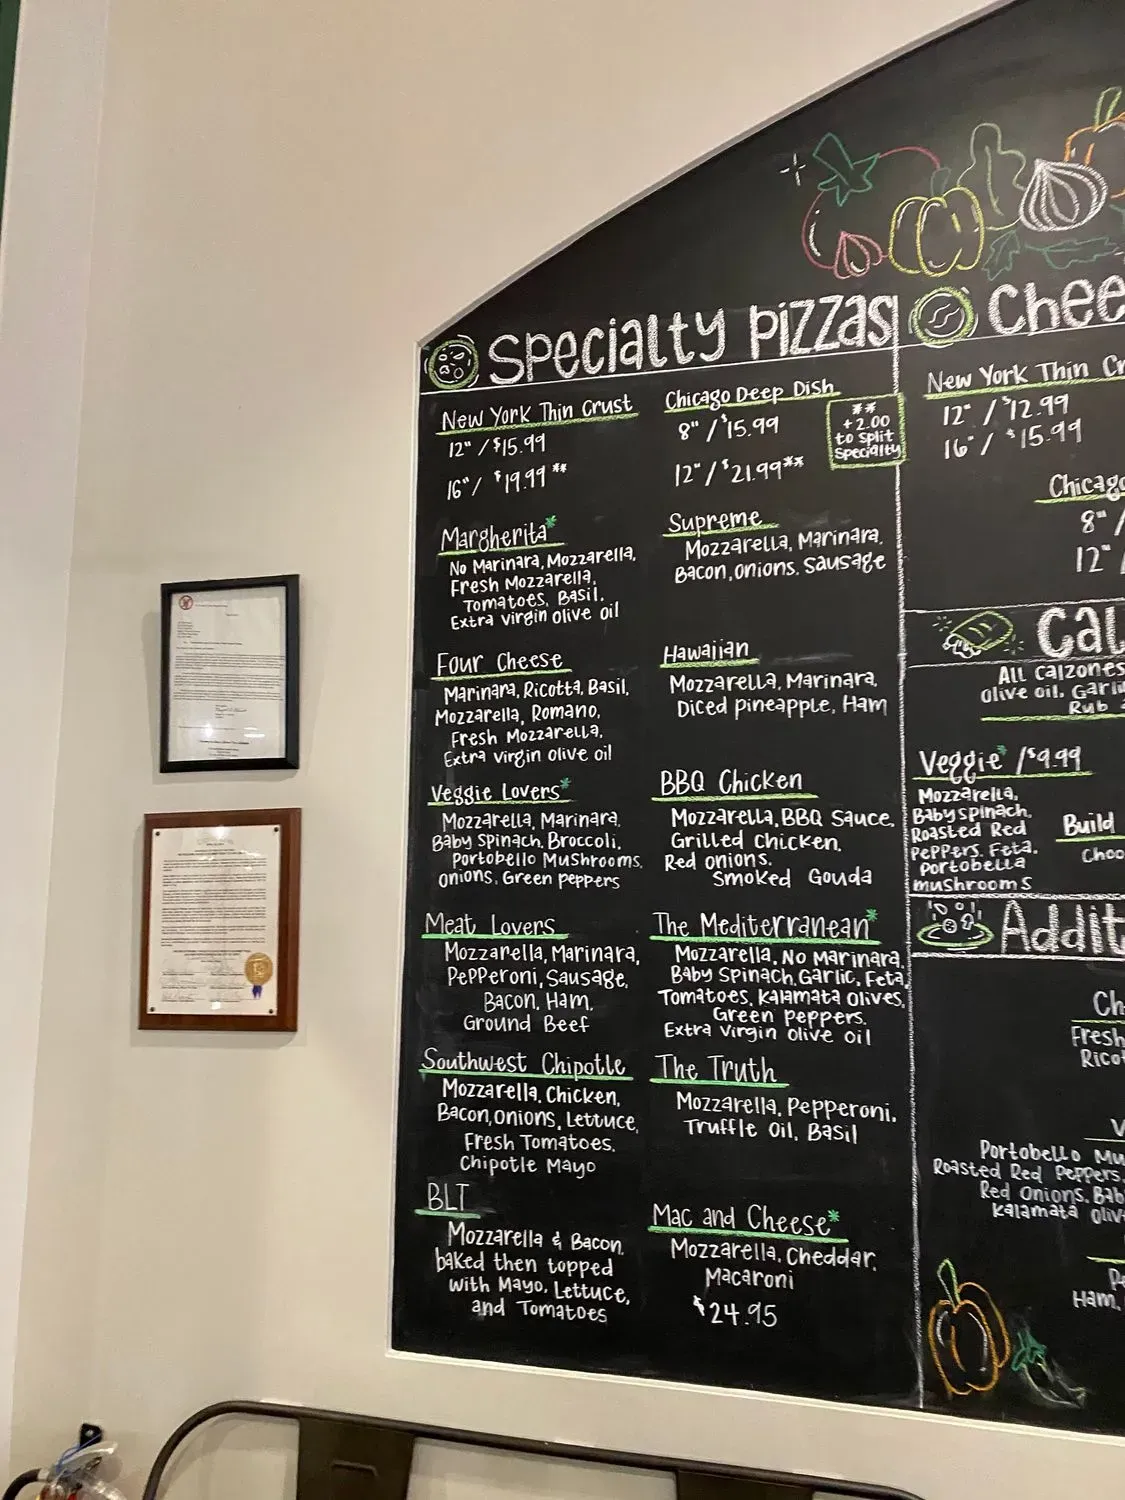 Specialty Pizzas
New York Thin Crust
12" / $15.99
16" / $19.99 **
Chicago Deep Dish
8" / $15.99
12" / $21.99**
**
+2.00
to Split
Specialty
Margherita*
No Marinara, Mozzarella,
Fresh Mozzarella,
Tomatoes, Basil,
Extra virgin olive oil
Four Cheese
Marinara, Ricotta, Basil,
Mozzarella, Romano,
Fresh Mozzarella,
Extra virgin olive oil
Veggie Lovers*
Mozzarella, Marinara,
Baby Spinach, Broccoli,
Portobello Mushrooms,
Onions, Green Peppers
Meat Lovers
Mozzarella, Marinara,
Pepperoni, Sausage,
Bacon, Ham,
Ground Beef
Southwest Chipotle
Mozzarella, Chicken,
Bacon, Onions, Lettuce,
Fresh Tomatoes,
Chipotle Mayo
BLT
Mozzarella & Bacon,
baked then topped
with Mayo, Lettuce,
and Tomatoes
Supreme
Mozzarella, Marinara,
Bacon, Onions, Sausage
Hawaiian
Mozzarella, Marinara,
Diced Pineapple, Ham
BBQ Chicken
Mozzarella, BBQ Sauce,
Grilled Chicken,
Red Onions,
Smoked Gouda
The Mediterranean*
Mozzarella, No Marinara,
Baby Spinach, Garlic, Feta,
Tomatoes, Kalamata Olives,
Green Peppers,
Extra virgin olive oil
The Truth
Mozzarella, Pepperoni,
Truffle Oil, Basil
Mac and Cheese*
Mozzarella, Cheddar,
Macaroni
$24.95
Chee
New York Thin Cr
12" / $12.99
16" / $15.99
Chicago
8" /
12"
Cal
All Calzones
olive oil, Garli
Rub
Veggie* / $9.99
Mozzarella,
Baby Spinach,
Roasted Red
Peppers, Feta,
Portobella
Mushrooms
Build
Choo
Addit
Ch
Fresh
Rico
V
Portobello Mu
Roasted Red Peppers,
Red Onions, Bab
Kalamata Oliv
Pe
Ham,